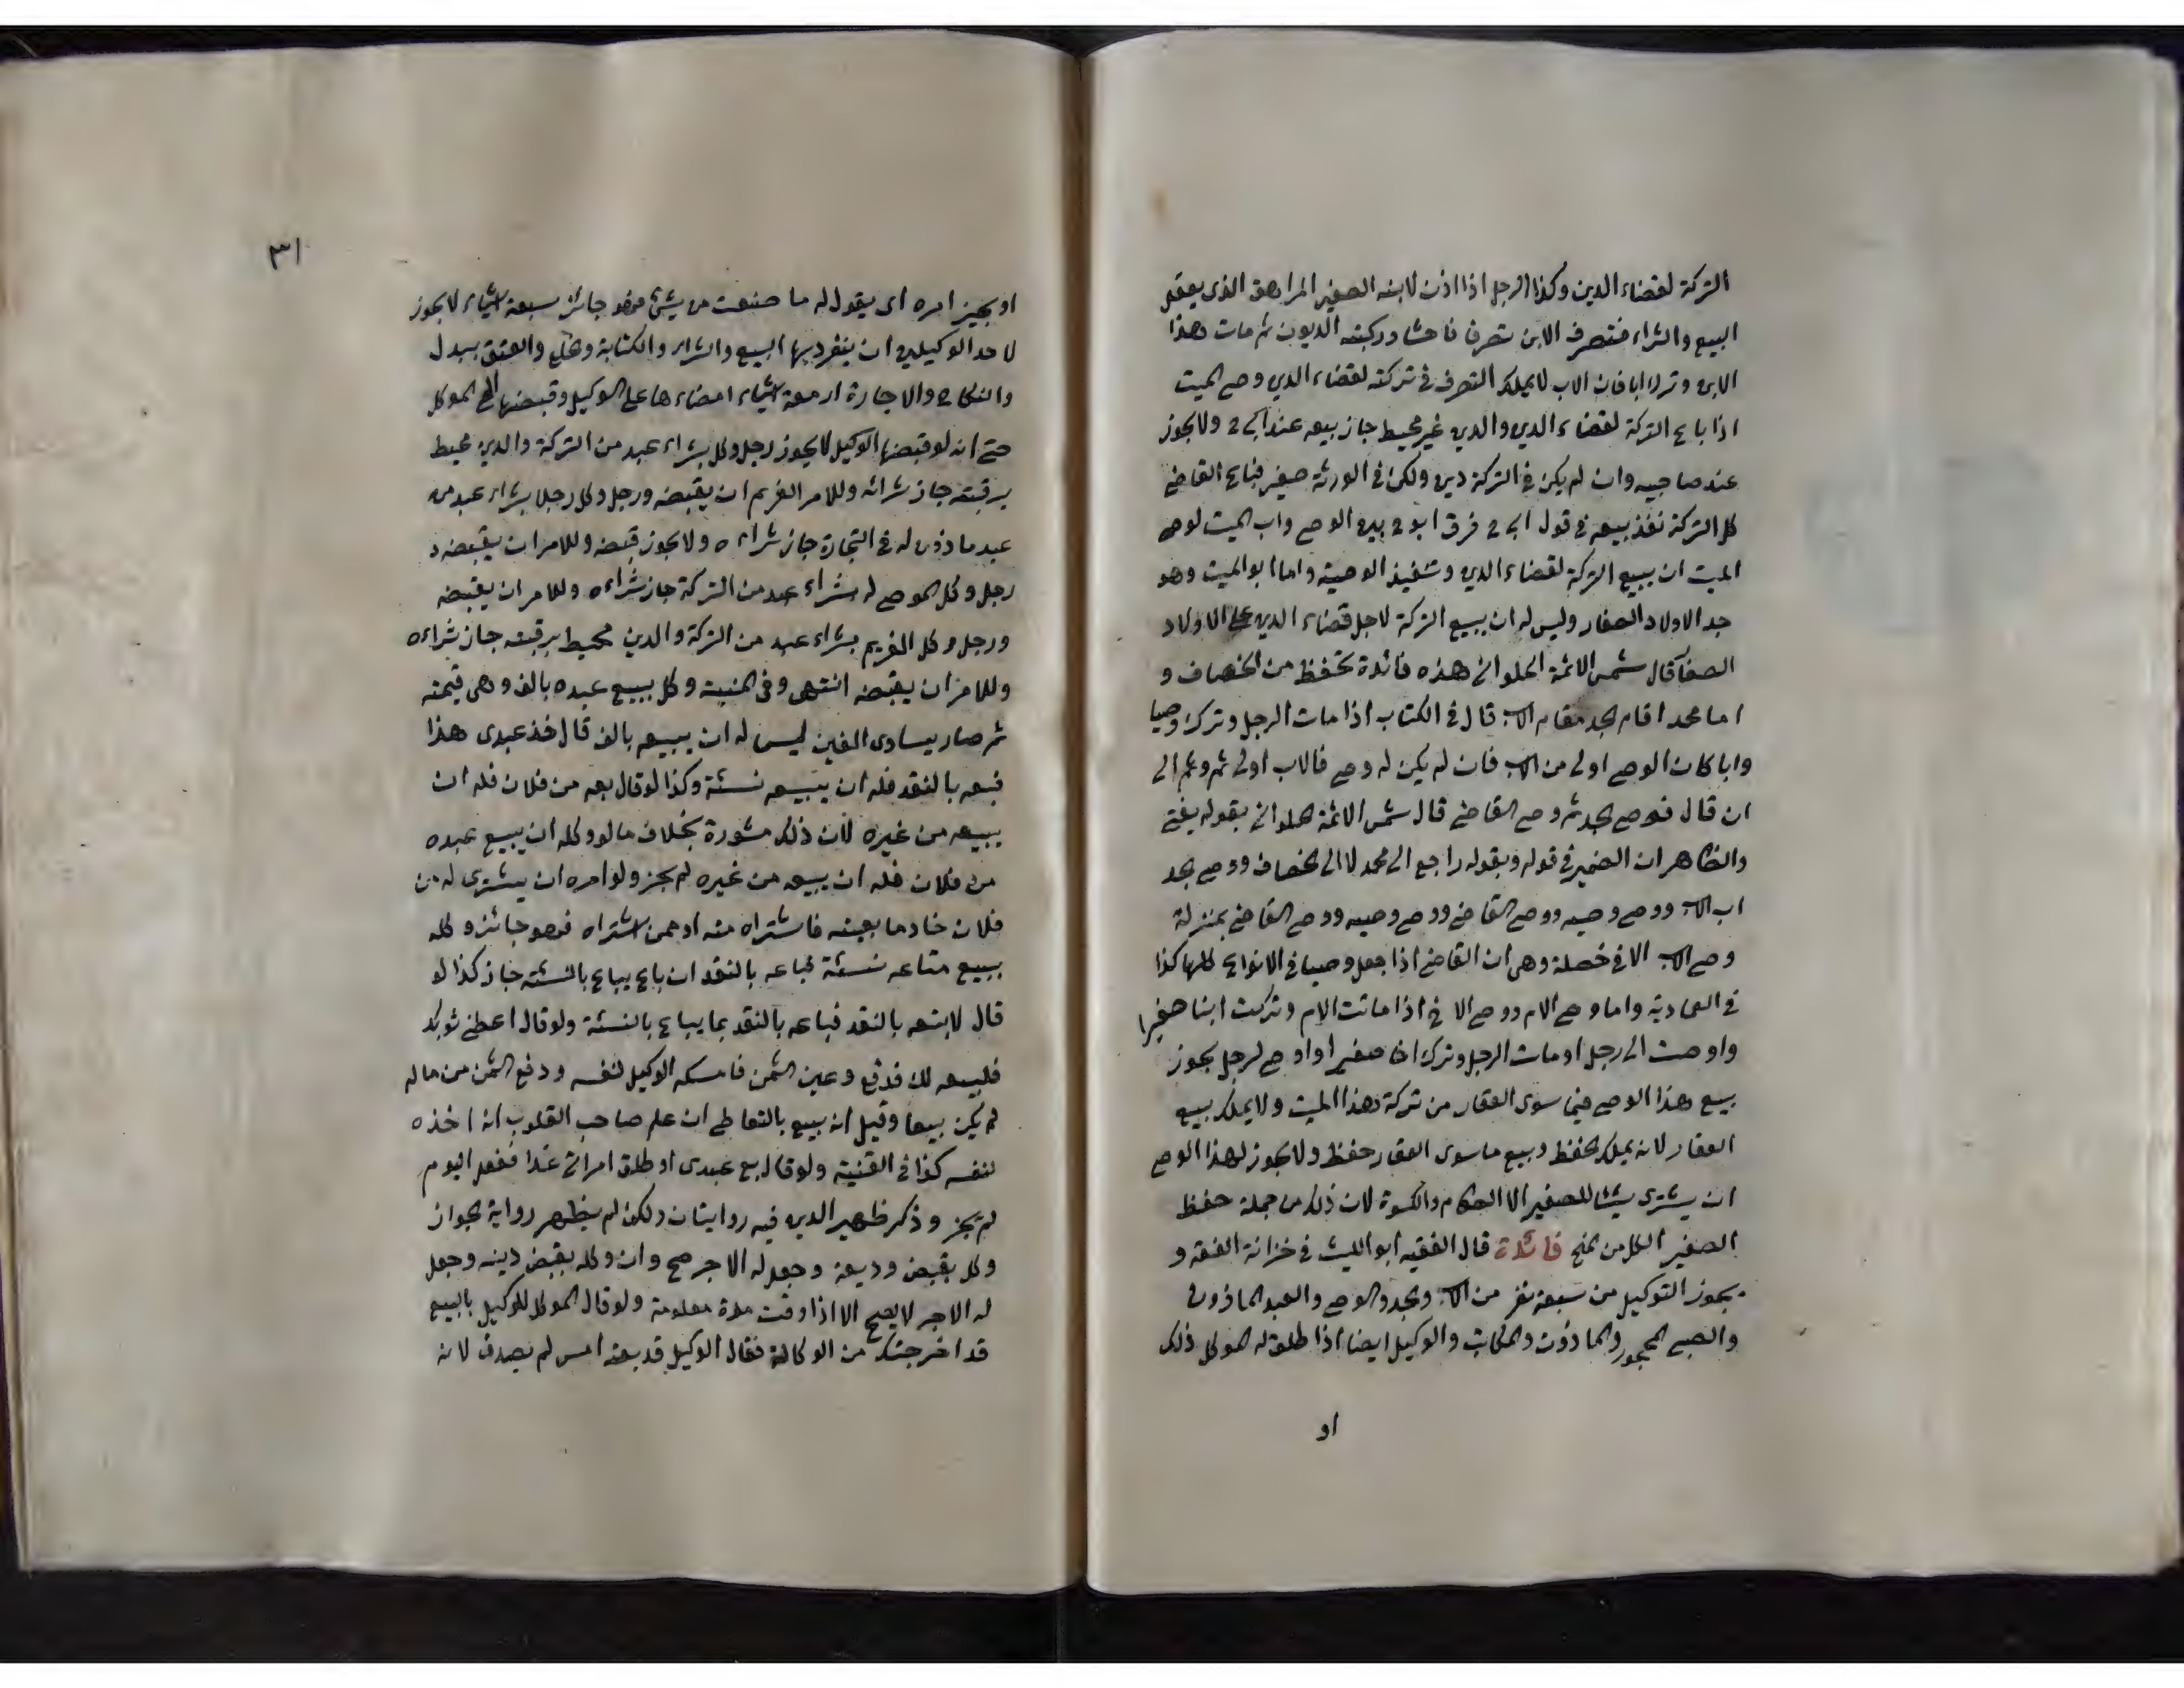 التركة لقضاء الدين وكذا الرجل اذا اذن لابنه الصغير المراهق الذى يعقل
البيع والشراء فتصرف الابن تصرفا فاحشا وركبته الديون ثم مات هذا
الابن وترك ابا فان الاب لا يملك التصرف فى تركته لقضاء الدين وصى الميت
اذا باع التركة لقضاء الدين والدين غير محيط جاز بيعه عند ابى ح ولا يجوز
عند صاحبيه وان لم يكن فى التركة دين ولكن فى الورثة صغير فباع القاضى
كل التركة نفذ بيعه فى قول ابى ح فرق ابو ح بين الوصى واب الميت لوصى
الميت ان يبيع التركة لقضاء الدين وتنفيذ الوصية واما ابو الميت وهو
جد الاولاد الصغار وليس له ان يبيع التركة لاجل قضاء الدين على الاولاد
الصغار قال شمس الائمة الحلوانى هذه فائدة تحفظ من الخصاف و
اما محمد اقام الجد مقام الاب قال فى الكتاب اذا مات الرجل وترك وصيا
وابا كان الوصى اولى من الاب فان لم يكن له وصى فالاب اولى ثم وثم الى
ان قال فوصى الجد ثم وصى القاضى قال شمس الائمة الحلوانى بقوله يفتى
والظاهر ان الضمير فى قوله وبقوله راجع الى محمد لا الى الخصاف ووصى الجد
اب الاب ووصى وصيه ووصى القاضى ووصى وصيه ووصى القاضى بمنزلة
وصى الاب الا فى خصلة وهى ان القاضى اذا جعل وصيا فى الانواع كلها كذا
فى العمادية واما وصى الام ووصى الاخ اذا ماتت الام وتركت ابنا صغيرا
واوصت الى رجل او مات الرجل وترك اخا صغيرا واوصى لرجل يجوز
بيع هذا الوصى فيما سوى العقار من تركة هذا الميت ولا يملك بيع
العقار لانه يملك الحفظ وبيع ما سوى العقار حفظ ولا يجوز لهذا الوصى
ان يشترى شيئا للصغير الا الطعام والكسوة لان ذلك من جملة حفظ
الصغير الكل من المنح فائدة قال الفقيه ابو الليث فى خزانة الفقه و
يجوز التوكيل من سبعة نفر من الاب والجد والوصى والعبد الماذون
والصبى المحجور والماذون والمكاتب والوكيل ايضا اذا طلق له الموكل ذلك
او
٣١
او يجيز امره اى يقول له ما صنعت من شىئ فهو جائز سبعة اشياء لا يجوز
لاحد الوكيلين ان ينفرد بها البيع والشراء والكتابة والخلع والعتق ببدل
والنكاح والاجارة اربعة اشياء امضاءها على الوكيل وقبضها الى الموكل
حتى انه لو قبضها الوكيل لا يجوز رجل وكل بشراء عبد من التركة والدين محيط
برقبته جاز شرائه وللامر الغريم ان يقبضه ورجل وكل رجلا بشراء عبد من
عبد ماذون له فى التجارة جاز شراءه ولا يجوز قبضه وللامر ان يقبضه و
رجل وكل الموصى له بشراء عبد من التركة جاز شراءه وللامر ان يقبضه
ورجل وكل الغريم بشراء عبد من التركة والدين محيط برقبته جاز شراءه
وللامر ان يقبضه انتهى وفى المنية وكل ببيع عبده بالف وهى قيمته
ثم صار يساوى الفين ليس له ان يبيعه بالف قال خذ عبدى هذا
فبعه بالنقد فله ان يبيعه نسئة وكذا لو قال بعه من فلان فله ان
يبيعه من غيره لان ذلك مشورة بخلاف ما لو وكله ان يبيع عبده
من فلان فله ان يبيعه من غيره لم يجز ولو امره ان يشترى له من
فلان خادما بعينه فاشتراه منه او ممن اشتراه فهو جائز وكله
ببيع متاعه نسئة فباعه بالنقد ان باع يباع بالنسئة جاز كذا لو
قال لا تبعه بالنقد فباعه بالنقد بما يباع بالنسئة ولو قال اعطنى ثوبك
فلبيعه لك فدفع وعين الثمن فامسكه الوكيل لنفسه ودفع الثمن من ماله
لم يكن بيعا وقيل انه بيع بالتعاطى ان علم صاحب القلوب انه اخذه
لنفسه كذا فى القنية ولو قال بع عبدى او طلق امراتى غدا ففعل اليوم
لم يجز وذكر ظهير الدين فيه روايتان ولكن لم يظهر رواية الجواز
وكل بقبض وديعة وجعل له الاجر صح وان وكله بقبض دينه وجعل
له الاجر لا يصح الا اذا وقت مدة معلومة ولو قال الموكل للوكيل بالبيع
قد اخرجتك من الوكالة فقال الوكيل قد بعته امس لم يصدق لانه